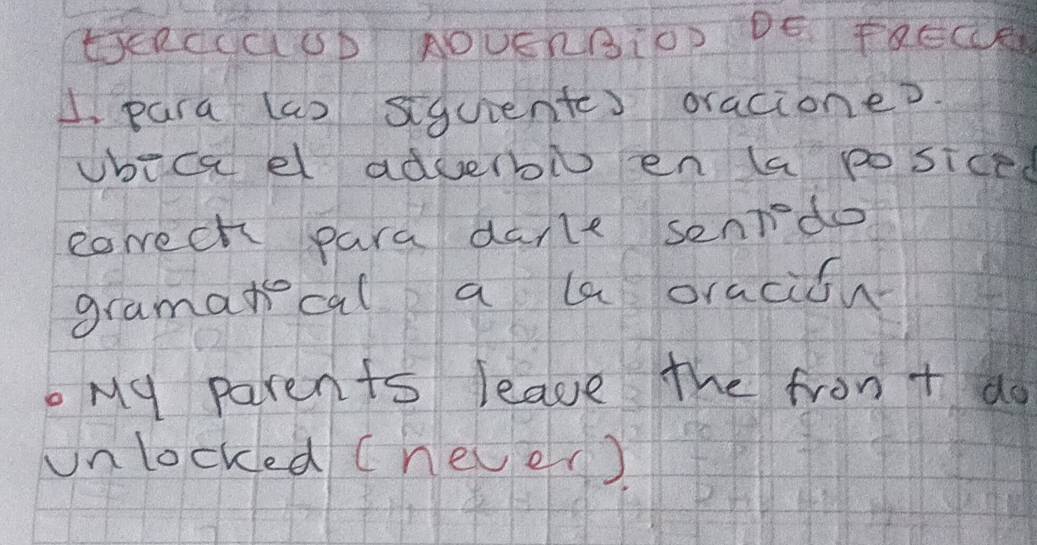 EJERCICIOS ADVERBIOS DE FRECUEN
1. para las siguientes oraciones.
Ubica el adverbio en la posici
correcta para darle sentido
gramatical a la oración
• My parents leave the front do
unlocked (never).